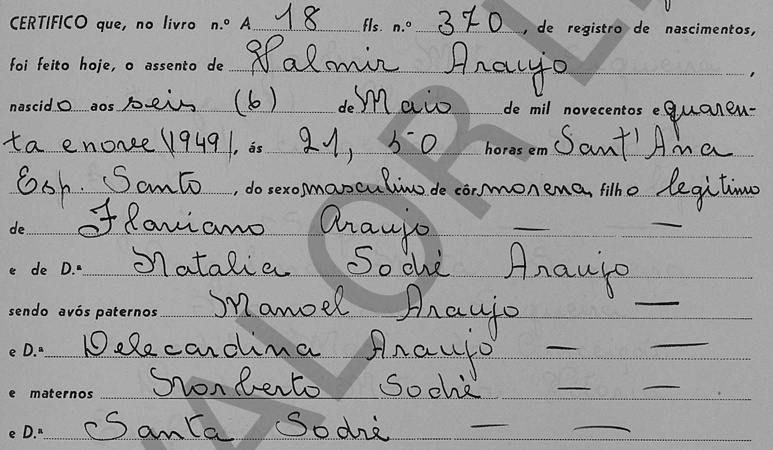 CERTIFICO que, no livro n.º A 18 fls. n.º 370, de registro de nascimentos,
foi feito hoje, o assento de Valmir Araujo,
nascido aos seis (6) de Maio de mil novecentos e quaren-
ta e nove (1949), ás 21, 50 horas em Sant'Ana
Esp. Santo, do sexo masculino de côr morena, filho legitimo
de Flaviano Araujo — —
e de D.ª Natalia Sodré Araujo
sendo avós paternos Manoel Araujo —
e D.ª Delecardina Araujo — —
e maternos Norberto Sodré — —
e D.ª Santa Sodré — —
VALOR